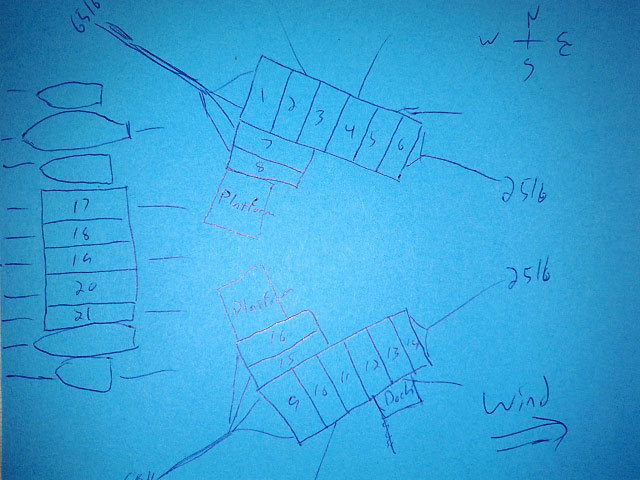 65lb
N
W E
S
1 2 3 4 5 6
7
8
Platform
25lb
17
18
19
20
21
25lb
Platform
16
15
9 10 11 12 13 14
Dock
Wind
65lb